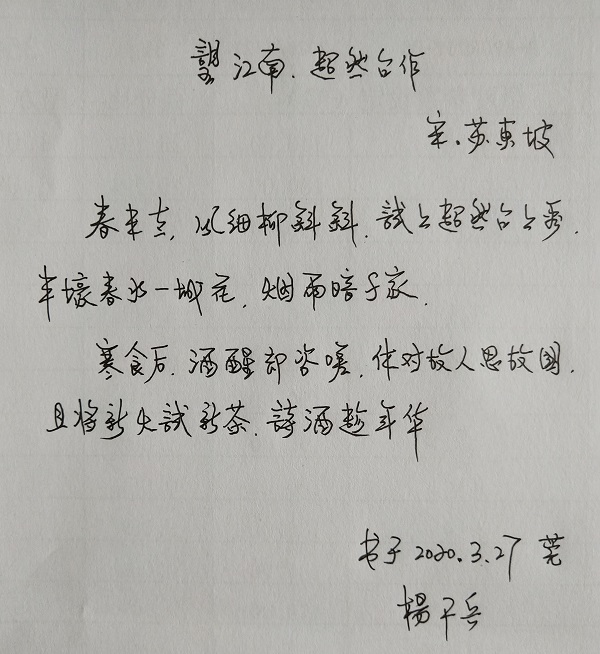 望江南.超然台作
宋.苏東坡
春未老,风细柳斜斜.試上超然台上看,
半壕春水一城花,烟雨暗千家.
寒食后,酒醒却咨嗟,休对故人思故國,
且将新火試新茶.詩酒趁年华
书于2020.3.27 莞
楊 兵